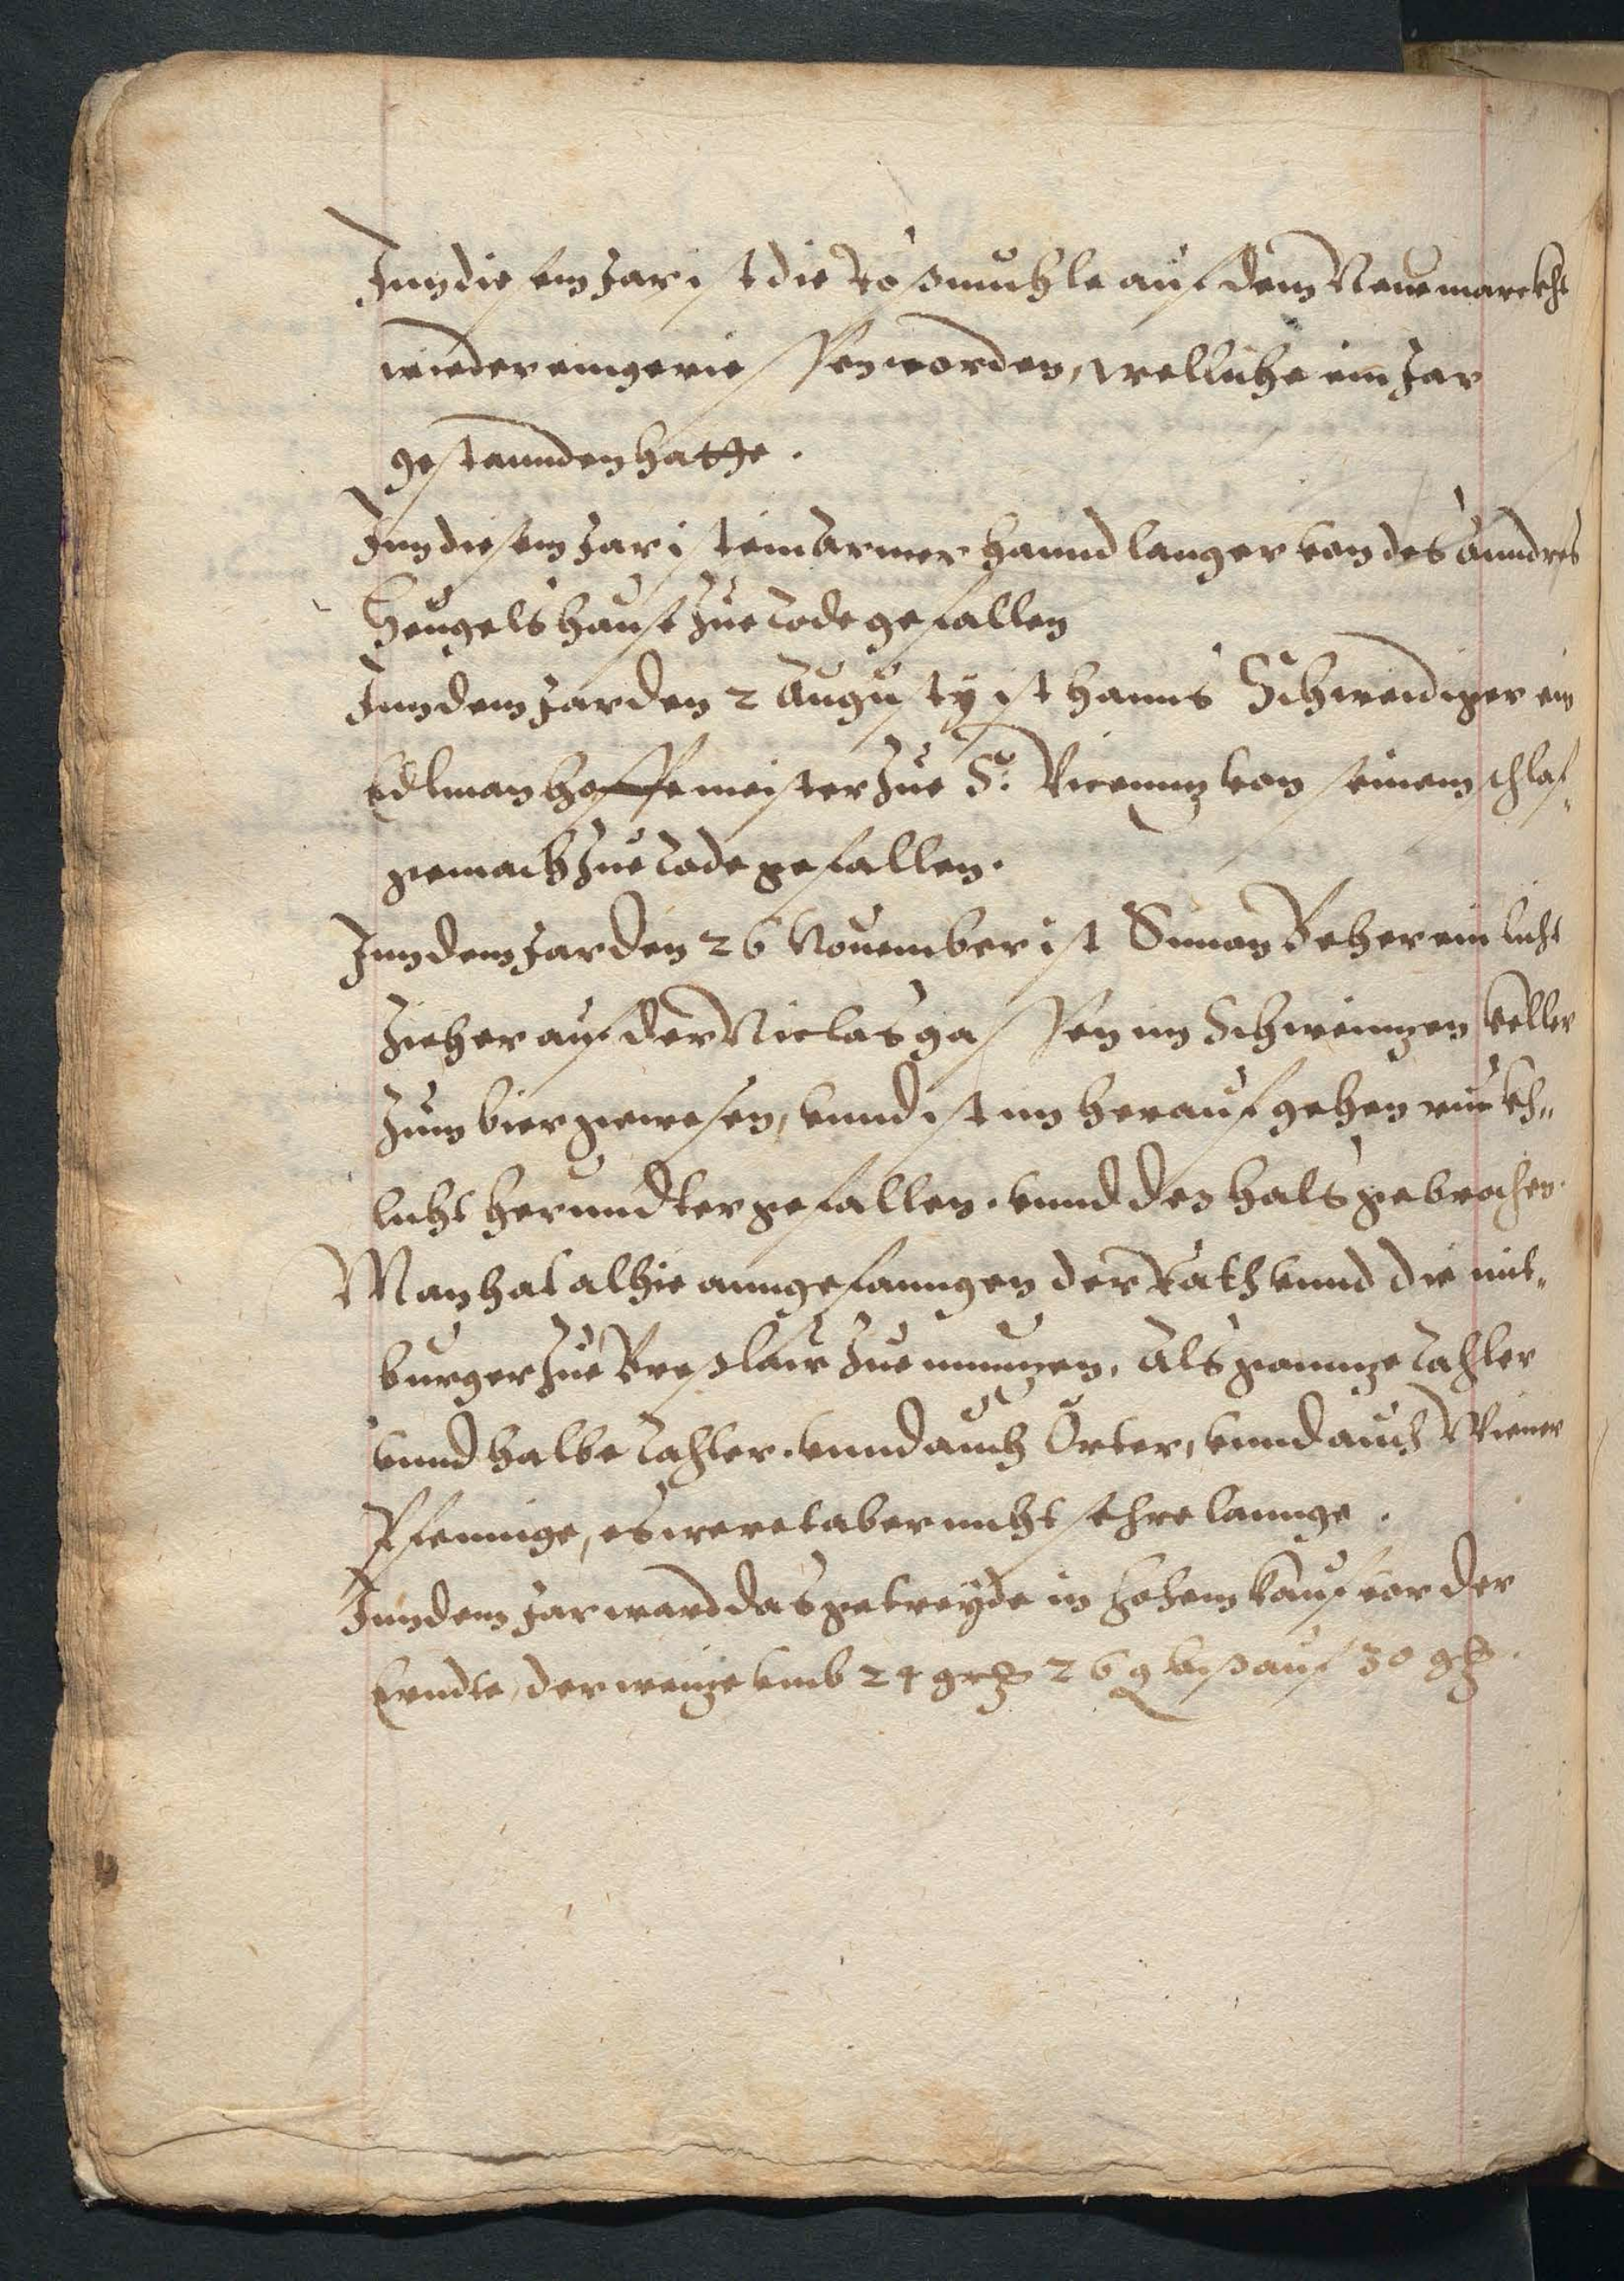 Inn diesem Jar ist die Roßmuhle auf dem Neuemarckht
wieder eingeriessen worden, welliche ein Jar
gestannden hatte.
Inn diesem Jar ist ein armer hanndlanger von des Anndres
Heugels hause zue tode gefallen
Inn dem Jar den 2 Augusty ist Hanns Schweidiger ein
Edlman hoffemeister zue S: Vicenntz von seinem schlaf„
gemach zue tode gefallen.
Inn dem Jar den 26 Nouember ist Simon Beher ein licht
zieher auf der Niclas gassen im Schweinigen Keller
zum bier gewesen, vnnd ist im herauf gehen ruckh„
licht herundter gefallen. vnnd den hals gebrochen.
Man hat alhie anngefanngen der Rath vnnd die mit„
burger zue Breßlaw zue muntzen, Als ganntze Tahler
vnnd halbe Tahler. vnnd auch Örter, vnnd auch Wiener
Pfennige, es weret aber nicht sehre lannge.
Inn dem Jar ward das getreyde in hohem Kauf vor der
Erndte, der weitze vmb 24 grß 26 g biß auf 30 gß.